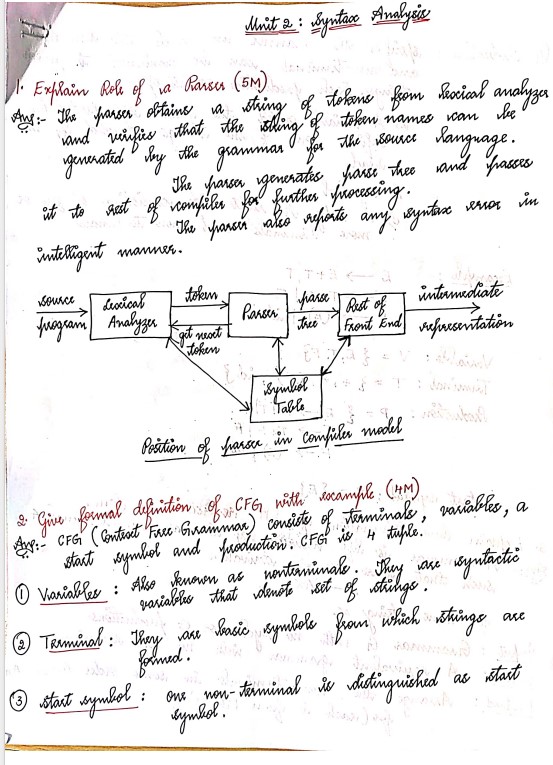 Unit 2 : Syntax Analysis
1. Explain Role of a Parser (5M)
Ans:- The parser obtains a string of tokens from lexical analyzer
and verifies that the string of token names can be
generated by the grammar for the source language.
The parser generates parse tree and passes
it to rest of compiler for further processing.
The parser also reports any syntax error in
intelligent manner.
source program
Lexical Analyzer
token
get next token
Parser
parse tree
Rest of Front End
intermediate representation
Symbol Table
Position of parser in compiler model
2. Give formal definition of CFG with example. (4M)
Ans:- CFG (Context Free Grammar) consists of terminals, variables, a
start symbol and production. CFG is 4 tuple.
① Variables : Also known as nonterminals. They are syntactic
variables that denote set of strings.
② Terminal : They are basic symbols from which strings are
formed.
③ start symbol : one non-terminal is distinguished as start
symbol.